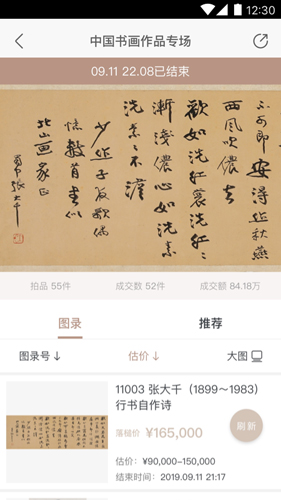 12:30
中国书画作品专场
09.11 22.08已结束
不可即安得从秋燕
西风吹侬去
欲如洗红裹洗红红
渐浅侬心如洗素
洗洗不浣
少作子夜歌偶
忆数首似
北山画家正
蜀郡张大千
拍品 55件
成交数 52件
成交额 84.18万
图录
推荐
图录号↓
估价↓
大图
11003 张大千（1899～1983）
行书自作诗
落槌价 ¥165,000
刷新
估价: ¥90,000-150,000
结束时间: 2019.09.11 21:17